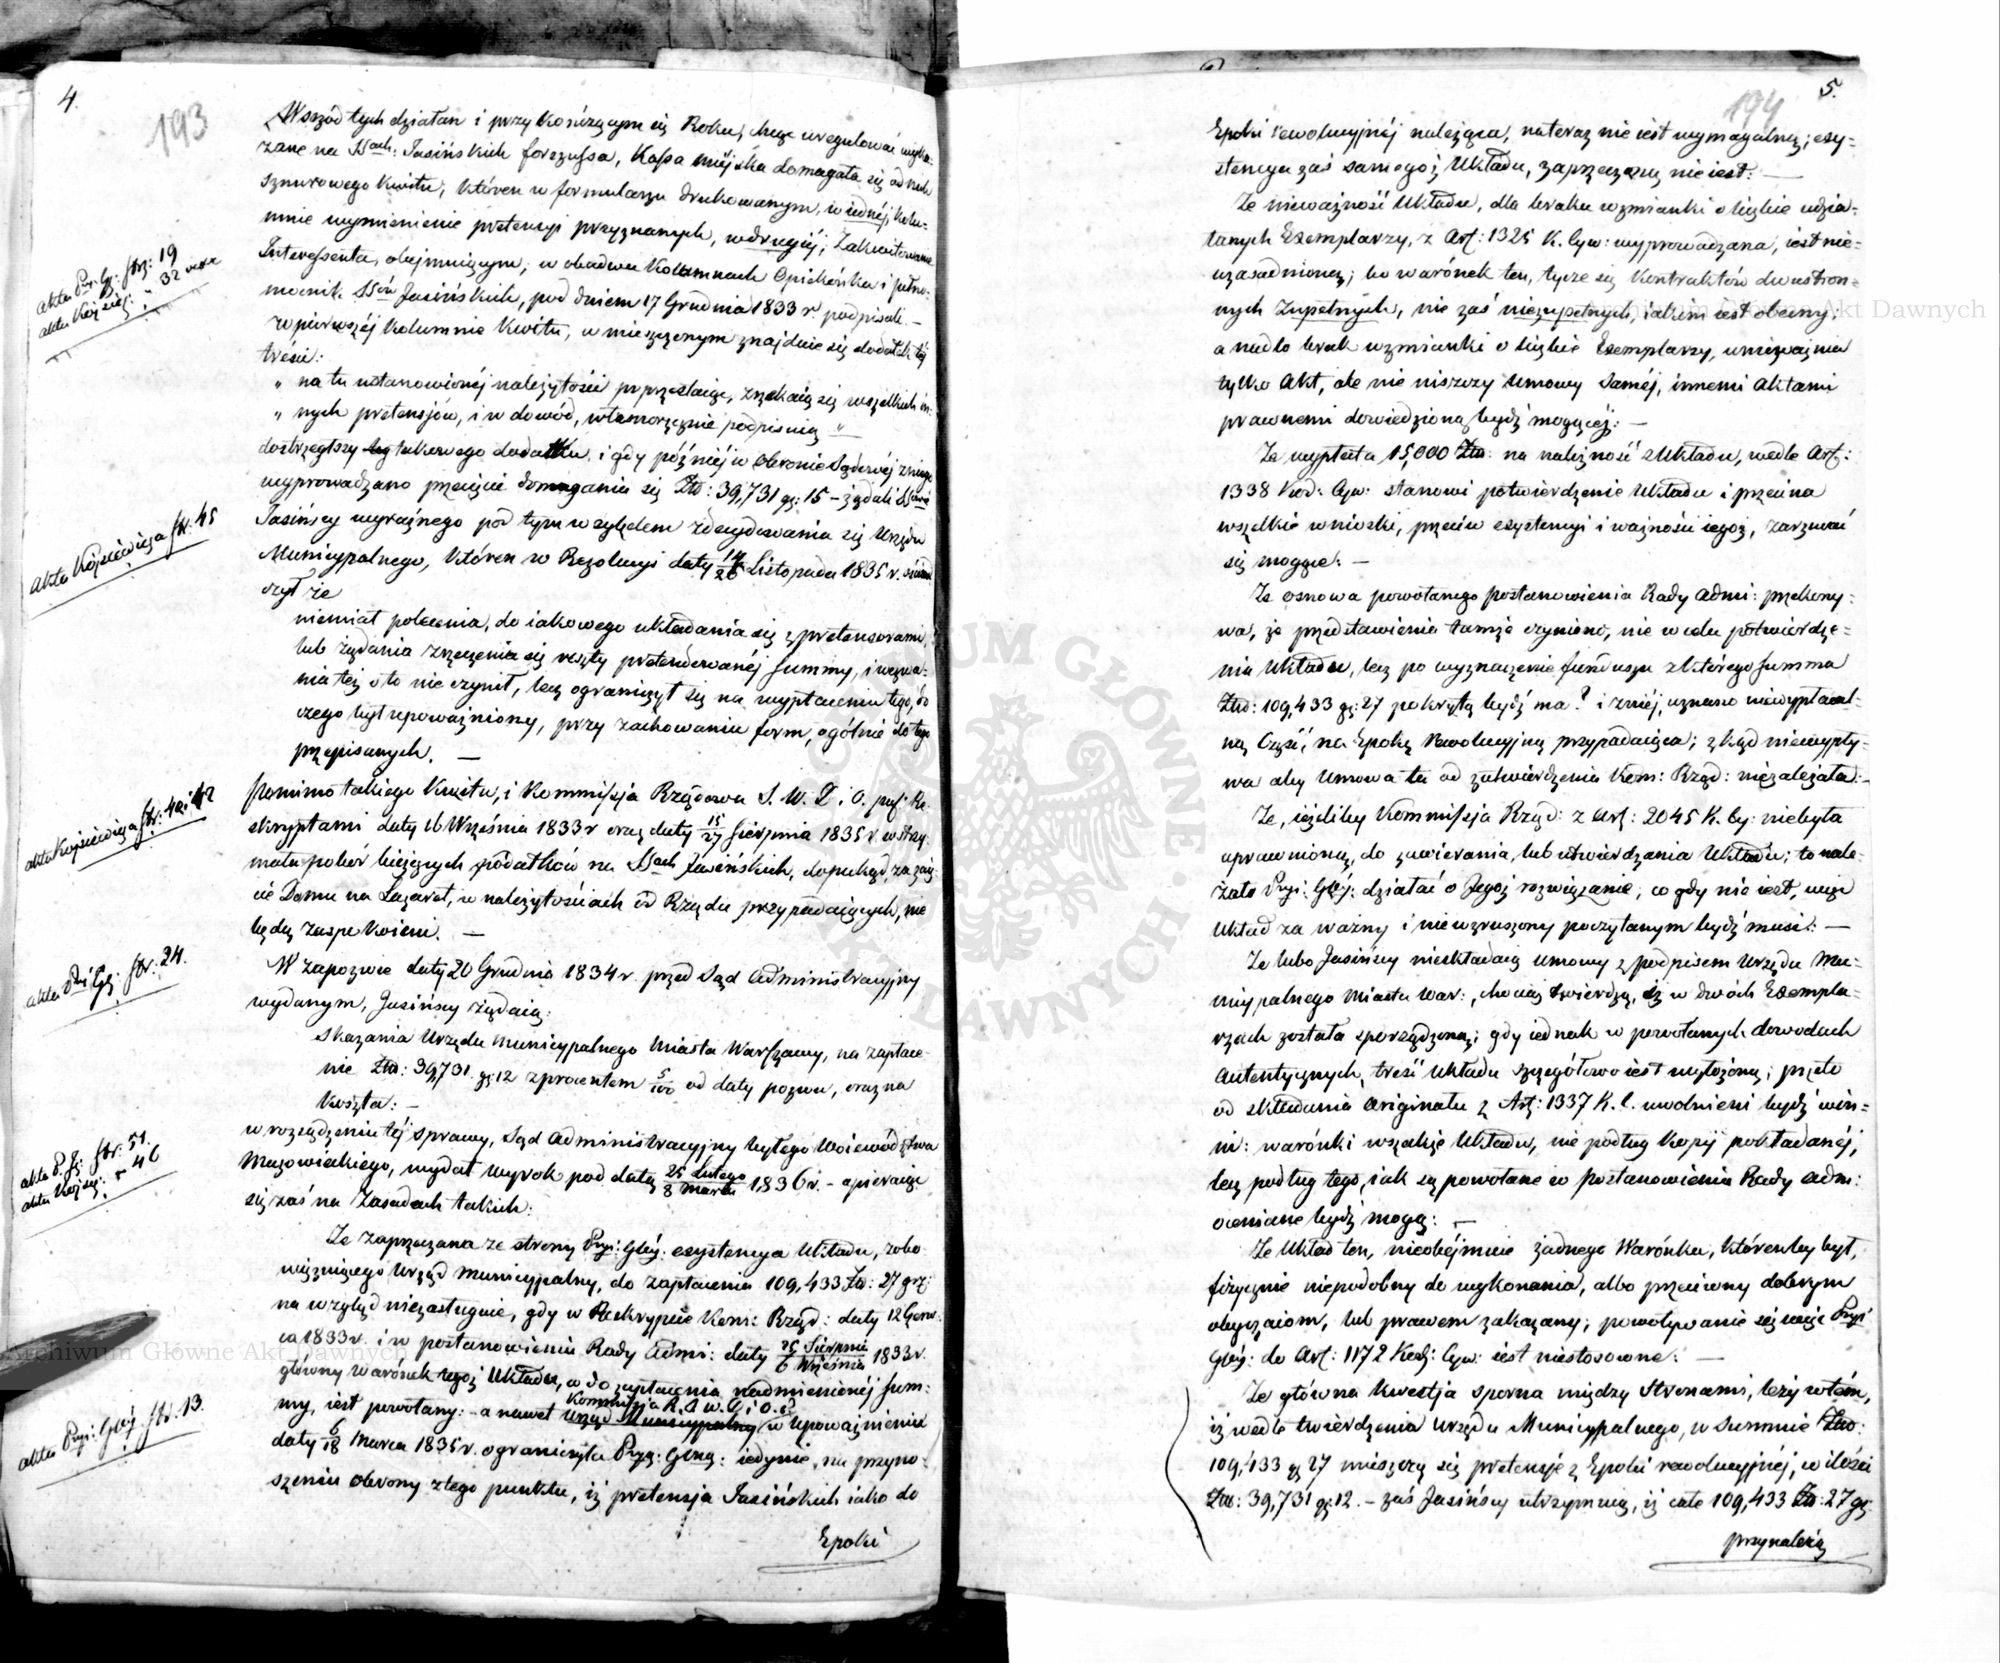 4.
193
Wśród tych działań i przy kończącym się Roku, chcąc uregulować wyka-
zane na SSach: Jasińskich forszussa, Kassa Miejska domagała się od nich
sznurowego kwitu, któren w formularzu drukowanym, w iednéj kolu-
mnie wymienienie pretensyi przyznanych, w drugiéj, Zakwitowanie
Interessenta, obejmuiącym; w obudwu kolumnach Opiekónka i pełno-
mocnik SSów Jasińskich, pod dniem 17 Grudnia 1833 r. podpisali. —
w pierwszéj kolumnie Kwitu, umieszczonym znajduie się dodatek téj
treści:
„ na tu ustanowionéj należytości poprzestaiąc, zrzekaią się wszelkich in-
„ nych pretensjów, i w dowód, własnoręcznie podpisuią "
dostrzegłszy takowego dodatku, i gdy późniéj w Obronie Sądowéj z niego
wyprowadzano przeciwie domagania się Złto: 39,731 gr: 15 — żądali SSowie
Jasińscy wyraźnego pod tym względem zdecydowania się Urzędu
Municypalnego, któren w Rezolucyi daty 14/26 Listopada 1835 r. oświad
czył że
niemiał polecenia, do iakowego układania się z pretensorami,
lub żądania zrzeczenia się reszty pretendowanéj summy, i wezwa-
nia też o to nie czynił, lecz ograniczył się na wypłaceniu tego, do
czego był upoważniony, przy zachowaniu form, ogólnie do tego
przepisanych. —
pomimo takiego Kwitu, i Kommissja Rządowa S. W. D. i O. pu: Re-
skryptami daty 16 Września 1833 r oraz daty 15/27 Sierpnia 1835 r. wstrzy-
mała pobór bieżących podatków na SSach Jasińskich, dopukąd, za zaię-
cie Domu na Lazaret, w należytościach od Rządu przypadaiących, nie
będą zaspokoieni. —
W zapozwie daty 20 Grudnia 1834 r. przed Sąd Administracyjny
wydanym, Jasińscy żądaią:
Skazania Urzędu Municypalnego Miasta Warszawy, na zapłace-
nie Złto: 39,731. gr: 12 z procentem 5/100 od daty pozwu, oraz na
koszta: —
w rozsądzeniu téj sprawy, Sąd Administracyjny byłego Województwa
Mazowieckiego, wydał wyrok pod datą 25 Lutego / 8 Marca 1836 r. — opieraiąc
się zaś na Zasadach takich:
Że zaprzeczana ze strony Pryi: Głéj: exystencya Układu, zobo-
wiązuiącego Urząd Municypalny, do zapłacenia 109,433 Złto: 27 gr:
na wzgląd niezasługuie, gdy w Reskrypcie Kom: Rząd: daty 12 Czerw-
ca 1833 r. i w postanowieniu Rady Admi: daty 25 Sierpnia / 6 Września 1833 r.
główny warónek tegoż Układu, co do zapłacenia nadmienionéj sum-
my, iest powołany: — a nawet Urząd Municypalny Kommissja R. S. W. D. i O. w upoważnieniu
daty 6/18 Marca 1835 r. ograniczyła Pryą: Głną: iedynie, na przyno-
szeniu obrony z tego punktu, iż pretensja Jasińskich iako do
Epoki
akta Pry: Gł: str: 19
akta Kojsiej: " 32 vera
akta Kojsiewicza str. 45
akta Kojsiewicza str: 40 i 42
akta Pryi Głéj: str: 24.
akta P. G: str: 51.
akta Kojsieg: " 46
akta Pryi: Głéj str. 13.
5.
194
Epoki rewolucyjnéj należąca, nateraz nie iest wymagalną; exy-
stencya zaś samegoż Układu, zaprzeczoną nie iest. —
Że nieważność Układu, dla braku wzmianki o liczbie udzia-
łanych Exemplarzy, z Art: 1325 K. Cyw: wyprowadzana, iest nie-
uzasadnioną; bo warónek ten, tycze się Kontraktów dwustron-
nych Zupełnych, nie zaś niezupełnych, iakim iest obecny:
a nadto brak wzmianki o liczbie Exemplarzy, unieważnia
tylko Akt, ale nie niszczy Umowy saméj, innemi Aktami
prawnemi dowiedzioną bydź mogącéj: —
Że wypłata 15,000 Złto: na należność z Układu, wedle Art:
1338 Kod: Cyw: stanowi potwierdzenie Układu i przecina
wszelkie wnioski, przeciw exystencyi i ważności iegoż, zarzucać
się mogące. —
Że osnowa powołanego postanowienia Rady Admi: przekony-
wa, że przedstawienie tamże czyniono, nie w celu potwierdze-
nia Układu, lecz po wyznaczenie funduszu z którego summa
Złto: 109,433 gr: 27 pokrytą bydź ma? i z niéj, uznano niewypłacal-
ną Część, na Epokę rewolucyjną przypadaiąca; zkąd niewypły-
wa aby Umowa ta od zatwierdzenia Kom: Rząd: niezależała: —
Że, ieżeliby Kommissja Rząd: z Art: 2045 K. Cy: niebyła
uprawnioną, do zawierania, lub utwierdzania Układu; to nale-
żało Pryi: Głéj: działać o Jegoż rozwiązanie, co gdy nie iest, więc
Układ za ważny i niewzruszony poczytanym bydź musi: —
Że lubo Jasińscy nieskładaią Umowy z podpisem Urzędu Mu-
nicypalnego Miasta War:, chociaż twierdzą, iż w dwóch Exempla-
rzach została sporządzoną; gdy iednak w powołanych dowodach
Autentycznych, treść Układu szczegółowo iest wyłożoną; przeto
od składania Originału z Art: 1337 K. C. uwolnieni bydź win-
ni: warónki wszakże Układu, nie podług kopij pokładanéj,
lecz podług tego, iak są powołane w postanowieniu Rady Adm:
oceniane bydź mogą: —
Że Układ ten, nieobéjmuie żadnego Warónku, którenby był,
fizycznie niepodobny do wykonania, albo przeciwny dobrym
obyczaiom, lub prawem zakazany; powoływanie się więc Pryi
Głéj: do Art: 1172 Kod: Cyw: iest niestosowne: —
Że główna kwestja sporna między Stronami, leży w tém,
iż wedle twierdzenia Urzędu Municypalnego, w Summie Złto:
109,433 gr 27 mieszczą się pretensje z Epoki rewolucyjnéj, w ilości
Złto: 39,731 gr: 12. — zaś Jasińscy utrzymuią, iż całe 109,433 Zł: 27 gr.
przynależą
Archiwum Główne Akt Dawnych
Archiwum Główne Akt Dawnych
ARCHIWUM GŁÓWNE AKT DAWNYCH